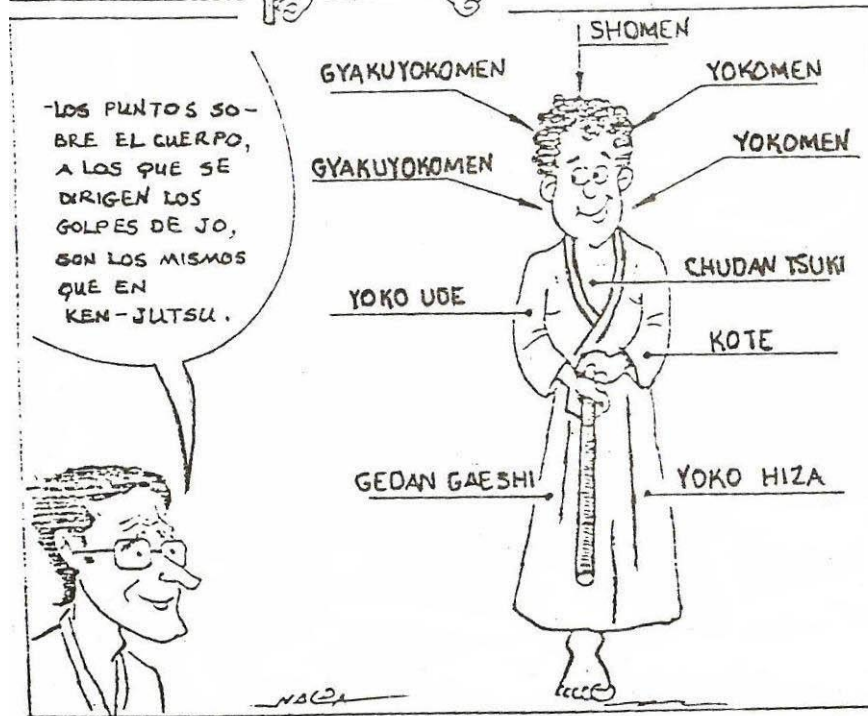 -LOS PUNTOS SO-
BRE EL CUERPO,
A LOS QUE SE
DIRIGEN LOS
GOLPES DE JO,
SON LOS MISMOS
QUE EN
KEN-JUTSU.
SHOMEN
GYAKUYOKOMEN
YOKOMEN
GYAKUYOKOMEN
YOKOMEN
CHUDAN TSUKI
YOKO UDE
KOTE
GEDAN GAESHI
YOKO HIZA